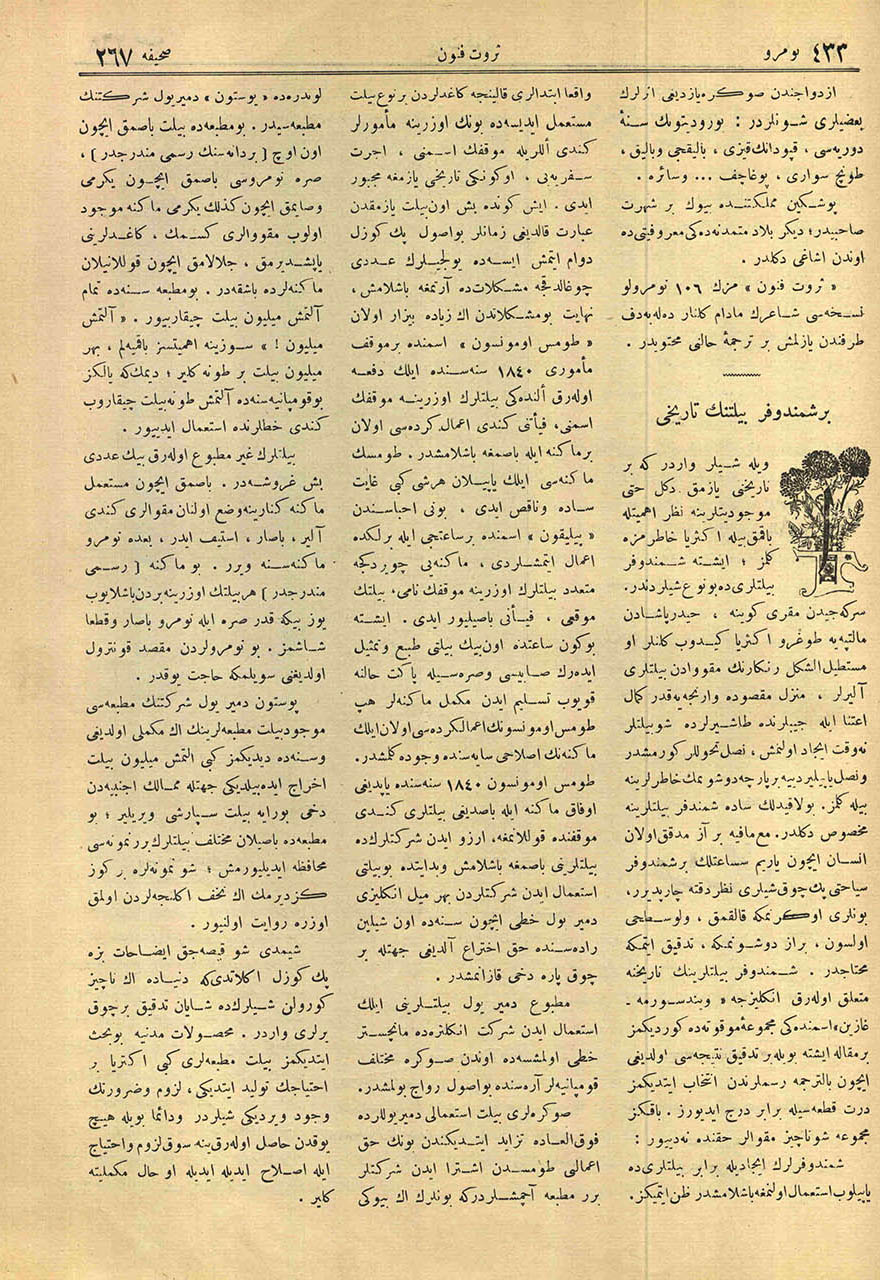 ٤٣٣ نومرو
ثروت فنون
صحيفه ٢٦٧
ازدواجندن صوكره يازديغى اثرلرك
بعضيلرى شونلردر : بورودينونك سنهٔ
دوريه‌سى ، قپودانك قيزى ، باليقجى وباليق ،
طونج سوارى ، پوغاچف ... وسائره .
پوشكين مملكتنده بيوك بر شهرت
صاحبيدر؛ ديكر بلاد متمدنه‌ده‌كى معروفيتى‌ده
اوندن اشاغى دكلدر .
« ثروت فنون » مزك ١٠٦ نومرولو
نسخه‌سى شاعرك مادام كلنار ده‌له‌به‌دف
طرفندن يازلمش بر ترجمهٔ حالنى محتويدر .
برشمندوفر بيلتنك تاريخى
ويله شيلر واردر كه بر
تاريخنى يازمق دكل حتى
موجوديتلرينه نظر اهميتله
باقمق بيله اكثريا خاطرمزه
كلمز ؛ ايشته شمندوفر
بيلتلرى‌ده بونوع شيلردندر.
سركه‌جيدن مقرى كوينه ، حيدرپاشادن
مالتپه‌يه طوغرو اكثريا كيدوب كلنلر او
مستطيل‌الشكل رنكارنك مقوادن بيلتلرى
آليرلر ، منزل مقصوده وارنجه‌يه‌قدر كمال
اعتنا ايله جيبلرنده طاشيرلرده شوبيلتلر
نه‌وقت ايجاد اولنمش ، نصل تحوللر كورمشدر
ونصل ياپيليردييه برپارچه‌دوشونمك خاطرلرينه
بيله كلمز. بولاقيدلك ساده شمندفر بيلتلرينه
مخصوص دكلدر. مع‌مافيه بر آز مدقق اولان
انسان ايچون ياريم ساعتلك برشمندوفر
سياحتى پك‌چوق شيلرى نظر دقته چارپديرر،
بونلرى اوكرنمكه قالقمق ، ولوسطحى
اولسون ، براز دوشونمكه ، تدقيق ايتمكه
محتاجدر . شمندوفر بيلتلرينك تاريخنه
متعلق اوله‌رق انكليزجه « وبندسورمه ـ
غازين» اسمنده‌كى مجموعهٔ موقوته‌ده كورديكمز
برمقاله ايشته بويله‌بر تدقيق نتيجه‌سى اولديغى
ايچون بالترجمه رسملرندن انتخاب ايتديكمز
درت قطعه‌سيله برابر درج ايديورز . باقكز
مجموعه شو ناچيز مقوالر حقنده نه‌دييور :
شمندوفرلرك ايجاديله برابر بيلتلرى‌ده
ياپيلوب استعمال اولنمغه باشلامشدر ظن ايتميكز.
واقعا ابتدالرى قالينجه كاغدلردن برنوع بيلت
مستعمل ايديسه‌ده بونك اوزرينه مأمورلر
كندى اللريله موقفك اسمنى ، اجرت
سفريه‌يى ، اوكونكى تاريخى يازمغه مجبور
ايدى . ايش كونده بش اون‌بيلت يازمقدن
عبارت قالديغى زمانلر بواصول پك كوزل
دوام ايتمش ايسه‌ده يولجيلرك عددى
چوغالدقجه مشكلات‌ده آرتمغه باشلامش ،
نهايت بومشكلاتدن اك زياده بيزار اولان
« طومس اومونسون » اسمنده برموقف
مأمورى ١٨٤٠ سنه‌سنده ايلك دفعه
اوله‌رق النده‌كى بيلتلرك اوزرينه موقفك
اسمنى، فيأتنى كندى اعمال‌كرده‌سى اولان
برماكنه ايله باصمغه باشلامشدر. طومسك
ماكنه‌سى ايلك ياپيلان هرشى كبى غايت
ساده وناقص ايدى ، بونى احباسندن
« بيليقون » اسمنده برساعتجى ايله برلكده
اعمال ايتمشلردى ، ماكنه‌يى چويردكجه
متعدد بيلتلرك اوزرينه موقفك نامى، بيلتك
موقعى ، فيأتى باصيليور ايدى . ايشته
بوكون ساعتده اون‌بيك بيلتى طبع وتمثيل
ايده‌رك صاييسى وصره‌سيله پاكت حالنه
قويوب تسليم ايدن مكمل ماكنه‌لر هپ
طومس اومونسونك اعمالكرده‌سى اولان ايلك
ماكنه‌نك اصلاحى سايه‌سنده وجوده كلمشدر.
طومس اومونسون ١٨٤٠ سنه‌سنده ياپديغى
اوفاق ماكنه ايله باصديغى بيلتلرى كندى
موقفنده قوللانمغه، ارزو ايدن شركتلرك‌ده
بيلتلرينى باصمغه باشلامش وبدايتده بوبيلتى
استعمال ايدن شركتلردن بهر ميل انكليزى
دمير يول خطى ايچون سنه‌ده اون شيلين
راده‌سنده حق اختراع آلديغى جهتله بر
چوق پاره دخى قازانمشدر.
مطبوع دمير يول بيلتلرينى ايلك
استعمال ايدن شركت انكلتره‌ده مانچستر
خطى اولمشسه‌ده اوندن صوكره مختلف
قومپانيه‌لر آره‌سنده بواصول رواج بولمشدر.
صوكره‌لرى بيلت استعمالى دميريوللرده
فوق‌العاده تزايد ايتديكندن بونك حق
اعمالى طومسدن اشترا ايدن شركتلر
برر مطبعه آچمشلردركه بونلرك اك بيوكى
لوندره‌ده « يوستون » دميريول شركتنك
مطبعه‌سيدر. بومطبعه‌ده بيلت باصمق ايچون
اون اوچ [ بردانه‌سنك رسمى مندرجدر ] ،
صره نومروسى باصمق ايچون يكرمى
وصايمق ايچون كذلك يكرمى ماكنه موجود
اولوب مقووالرى كسمك ، كاغدلرينى
ياپشديرمق ، جلالامق ايچون قوللانيلان
ماكنه‌لرده باشقه‌در. بومطبعه سنه‌ده تمام
آلتمش ميليون بيلت چيقارييور . « آلتمش
ميليون ! » سوزينه اهميتسز باقميه‌لم ، بهر
ميليون بيلت بر طونه كلير ؛ ديمك‌كه يالكز
بوقومپانيه سنه‌ده آلتمش طونه‌بيلت چيقاروب
كندى خطلرنده استعمال ايدييور .
بيلتلرك غير مطبوع اوله‌رق بيك عددى
بش غروشه‌در . باصمق ايچون مستعمل
ماكنه كنارينه وضع اولنان مقوالرى كندى
آلير ، باصار ، استيف ايدر ، بعده نومرو
ماكنه‌سنه ويرر . بو ماكنه [ رسمى
مندرجدر ] هربيلتك اوزرينه بردن باشلايوب
يوز بيكه قدر صره ايله نومرو باصار وقطعا
شاشمز . بو نومرولردن مقصد قونترول
اولديغنى سويلمكه حاجت يوقدر .
يوستون دمير يول شركتنك مطبعه‌سى
موجودبيلت مطبعه‌لرينك اك مكملى اولديغى
وسنه‌ده ديديكمز كبى التمش ميليون بيلت
اخراج ايده‌بيلديكى جهتله ممالك اجنبيه‌دن
دخى بورايه بيلت سپارشى ويريلير ؛ بو
مطبعه‌ده باصيلان مختلف بيلتلرك بررنمونه‌سى
محافظه ايديليورمش ؛ شو نمونه‌لره بر كوز
كزديرمك اك تحف اكلنجه‌لردن اولمق
اوزره روايت اولنيور .
شيمدى شو قيصه‌جق ايضاحات بزه
پك كوزل اكلاتدى‌كه دنياده اك ناچيز
كورولن شيلرك‌ده شايان تدقيق برچوق
يرلرى واردر . محصولات مدنيه بوبحث
ايتديكمز بيلت مطبعه‌لرى كبى اكثريا بر
احتياجك توليد ايتديكى ، لزوم وضرورتك
وجود ويرديكى شيلردر ودائما بويله هيچ
يوقدن حاصل اوله‌رق‌ينه سوق لزوم واحتياج
ايله اصلاح ايديله ايديله او حال مكمليته
كلير .